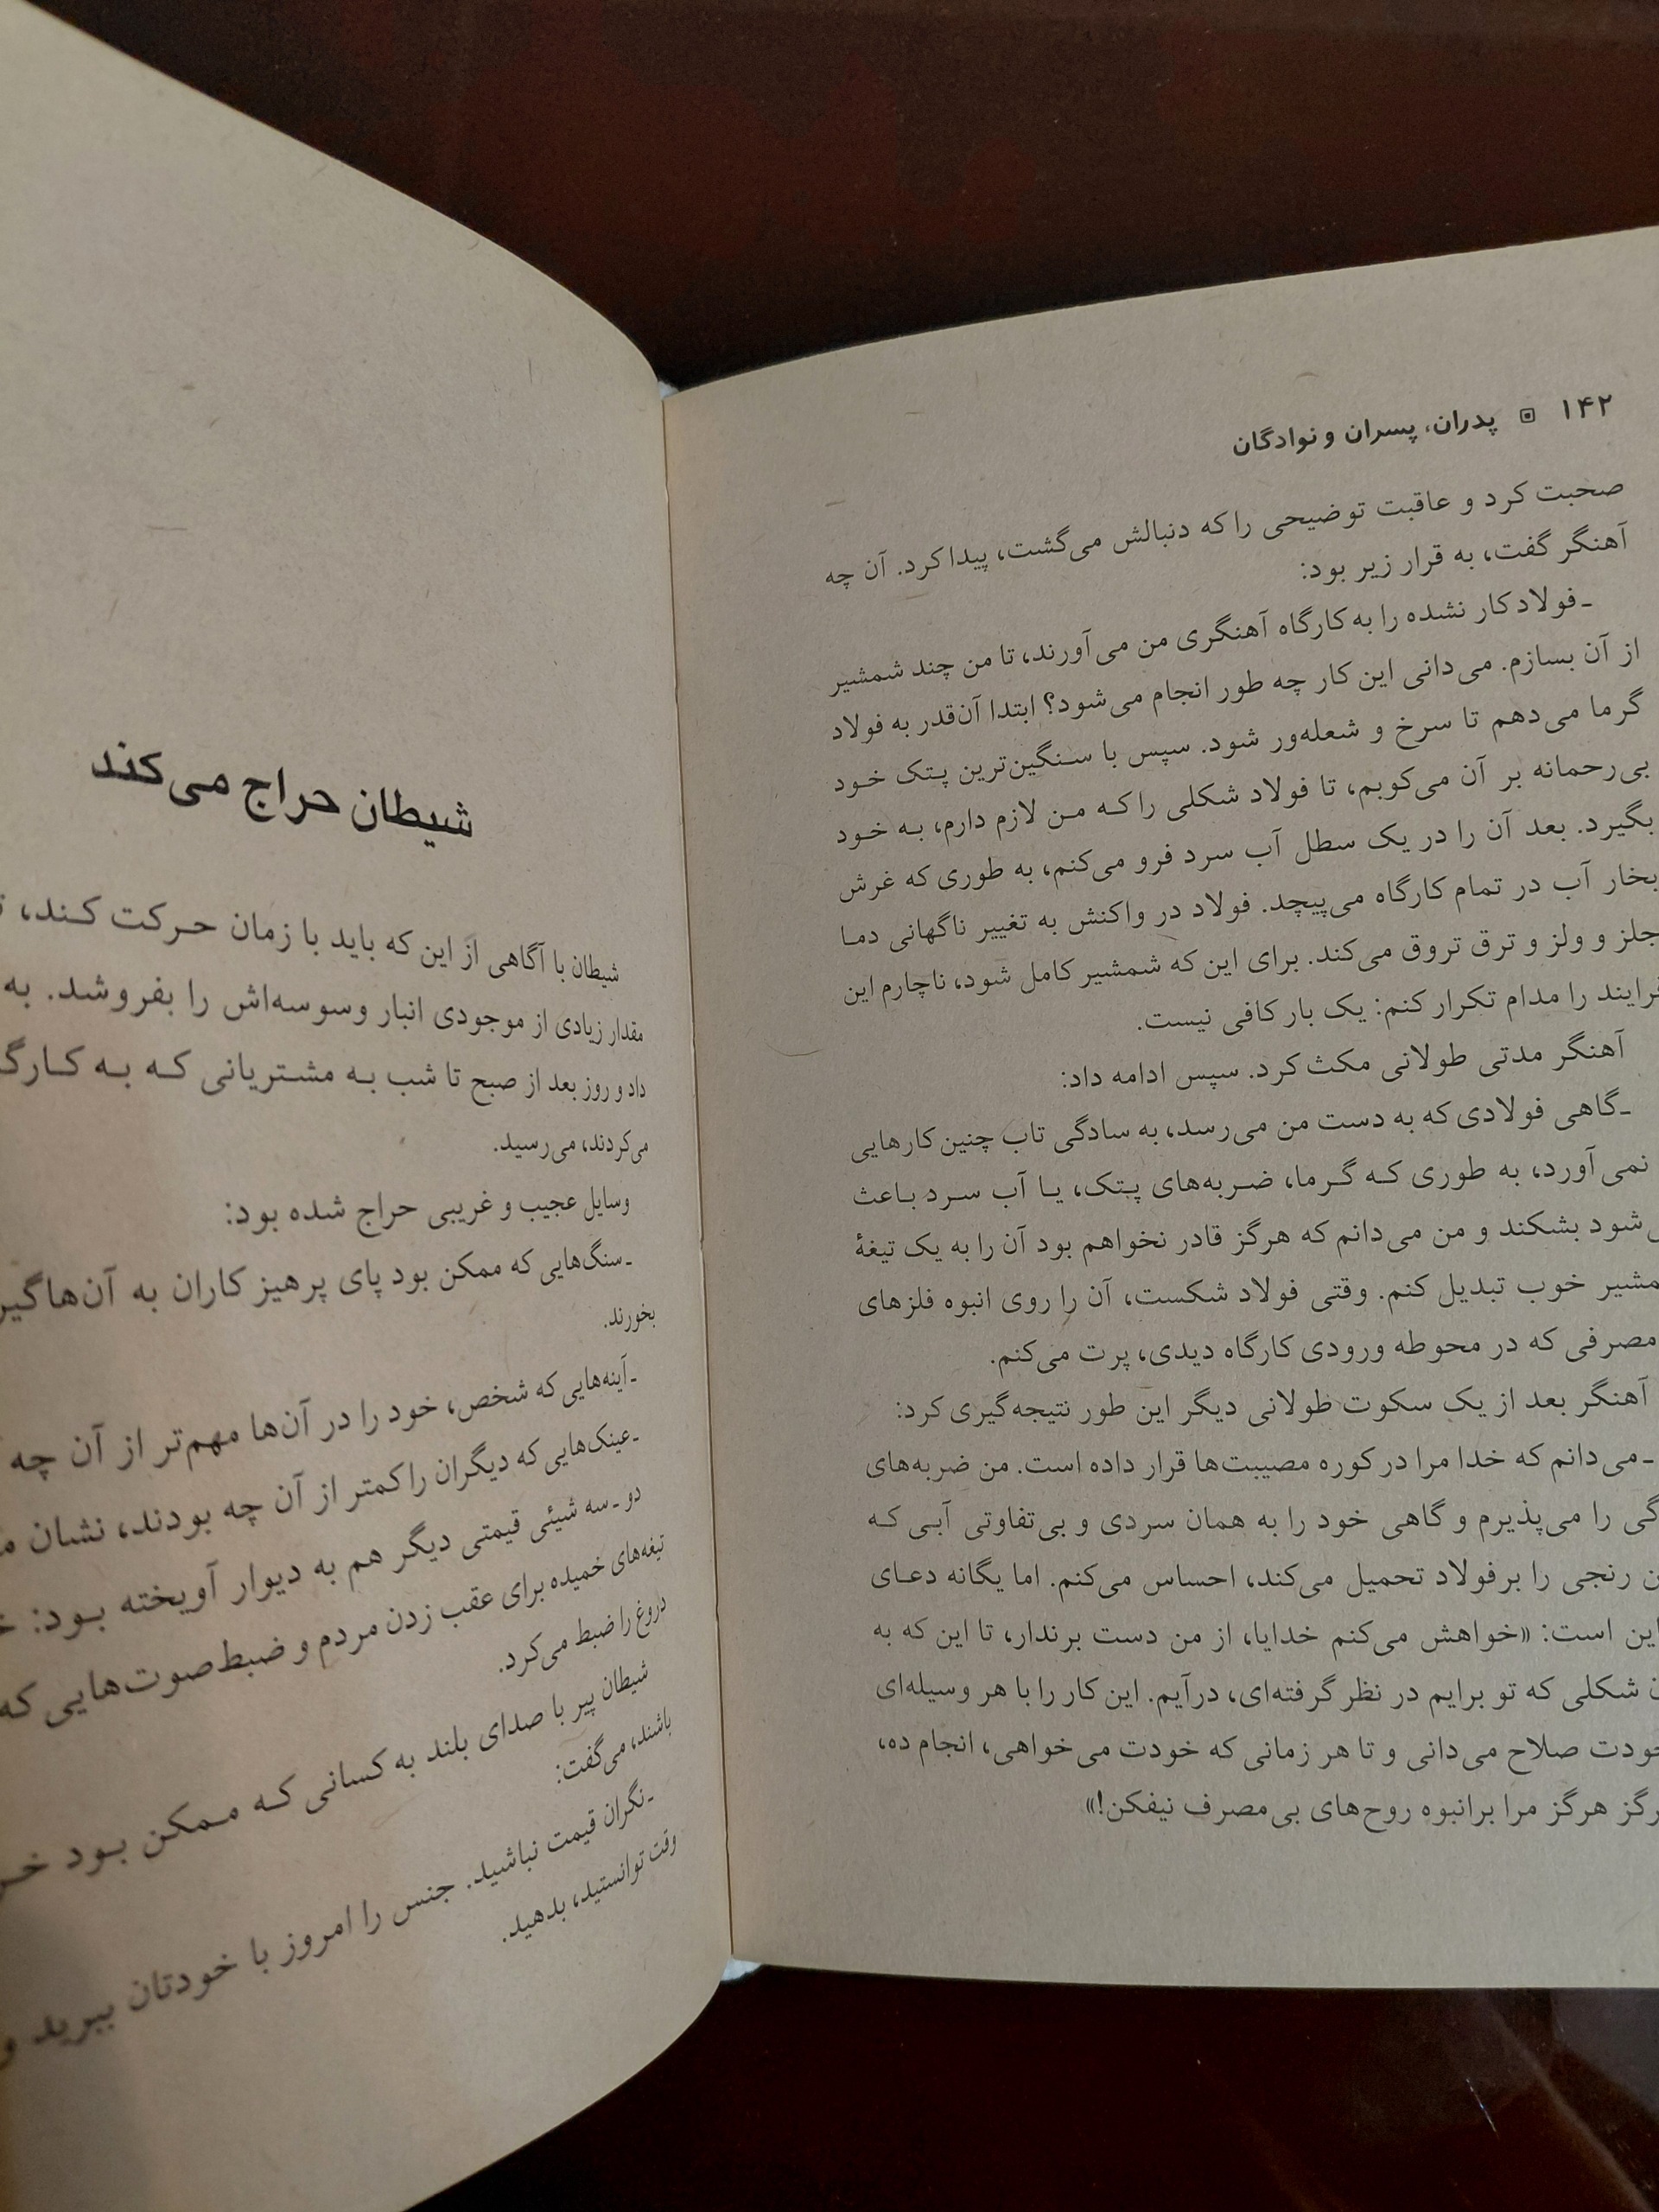 ۱۴۲ پدران، پسران و نوادگان
صحبت کرد و عاقبت توضیحی را که دنبالش می‌گشت، پیدا کرد. آن چه
آهنگر گفت، به قرار زیر بود:
ـ فولاد کار نشده را به کارگاه آهنگری من می‌آورند، تا من چند شمشیر
از آن بسازم. می‌دانی این کار چه طور انجام می‌شود؟ ابتدا آن‌قدر به فولاد
گرما می‌دهم تا سرخ و شعله‌ور شود. سپس با سنگین‌ترین پتک خود
بی‌رحمانه بر آن می‌کوبم، تا فولاد شکلی را که من لازم دارم، به خود
بگیرد. بعد آن را در یک سطل آب سرد فرو می‌کنم، به طوری که غرش
بخار آب در تمام کارگاه می‌پیچد. فولاد در واکنش به تغییر ناگهانی دما
جلز و ولز و ترق تروق می‌کند. برای این که شمشیر کامل شود، ناچارم این
فرایند را مدام تکرار کنم: یک بار کافی نیست.
آهنگر مدتی طولانی مکث کرد. سپس ادامه داد:
ـ گاهی فولادی که به دست من می‌رسد، به سادگی تاب چنین کارهایی
نمی‌آورد، به طوری که گرما، ضربه‌های پتک، یا آب سرد باعث
شود بشکند و من می‌دانم که هرگز قادر نخواهم بود آن را به یک تیغهٔ
خوب تبدیل کنم. وقتی فولاد شکست، آن را روی انبوه فلزهای
مصرفی که در محوطه ورودی کارگاه دیدی، پرت می‌کنم.
آهنگر بعد از یک سکوت طولانی دیگر این طور نتیجه‌گیری کرد:
ـ می‌دانم که خدا مرا در کوره مصیبت‌ها قرار داده است. من ضربه‌های
را می‌پذیرم و گاهی خود را به همان سردی و بی‌تفاوتی آبی که
رنجی را بر فولاد تحمیل می‌کند، احساس می‌کنم. اما یگانه دعای
این است: «خواهش می‌کنم خدایا، از من دست برندار، تا این که به
شکلی که تو برایم در نظر گرفته‌ای، درآیم. این کار را با هر وسیله‌ای
خودت صلاح می‌دانی و تا هر زمانی که خودت می‌خواهی، انجام ده،
هرگز مرا بر انبوه روح‌های بی‌مصرف نیفکن!»
شیطان حراج می‌کند
شیطان با آگاهی از این که باید با زمان حرکت کند،
مقدار زیادی از موجودی انبار وسوسه‌اش را بفروشد. به
داد و روز بعد از صبح تا شب به مشتریانی که به
می‌کردند، می‌رسید.
وسایل عجیب و غریبی حراج شده بود:
ـ سنگ‌هایی که ممکن بود پای پرهیزکاران به آن‌ها گیر
بخورند.
ـ آینه‌هایی که شخص، خود را در آن‌ها مهم‌تر از آن چه
ـ عینک‌هایی که دیگران را کمتر از آن چه بودند، نشان
دو ـ سه شیئی قیمتی دیگر هم به دیوار آویخته بود:
تیغه‌های خمیده برای عقب زدن مردم و ضبط‌صوت‌هایی که
دروغ را ضبط می‌کرد.
شیطان پیر با صدای بلند به کسانی که ممکن بود
باشند، می‌گفت:
ـ نگران قیمت نباشید. جنس را امروز با خودتان ببرید و
وقت توانستید، بدهید.